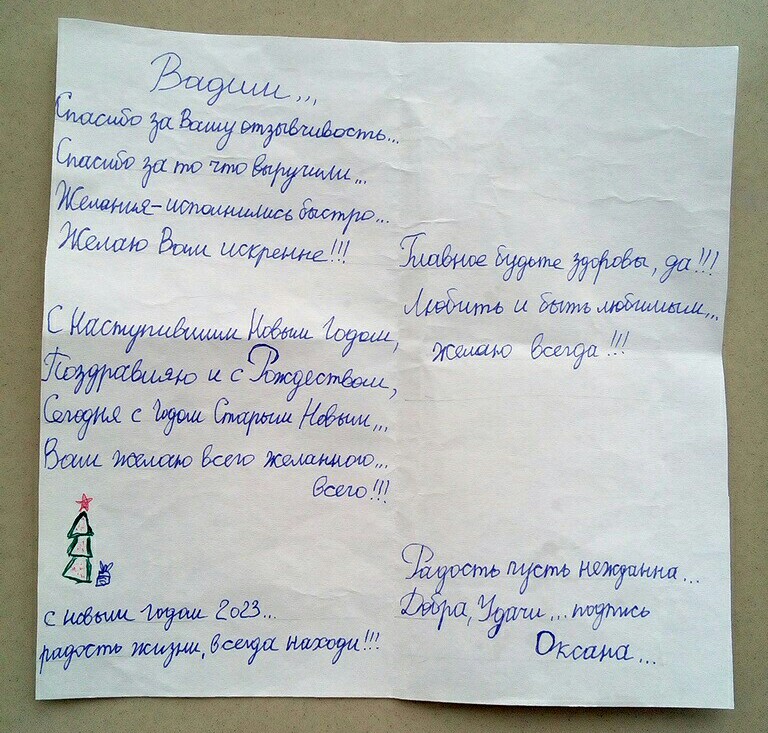 Вадим...
Спасибо за Вашу отзывчивость...
Спасибо за то что выручили...
Желания-исполнились быстро...
Желаю Вам искренне!!!
С Наступившим Новым Годом,
Поздравляю и с Рождеством,
Сегодня с Годом Старым Новым...
Вам желаю всего желанного...
всего!!!
с новым годом 2023...
радость жизни, всегда находи!!!
Главное будьте здоровы, да!!!
Любить и быть любимым...
желаю всегда!!!
Радость пусть нежданна...
Добра, Удачи... подпись
Оксана...